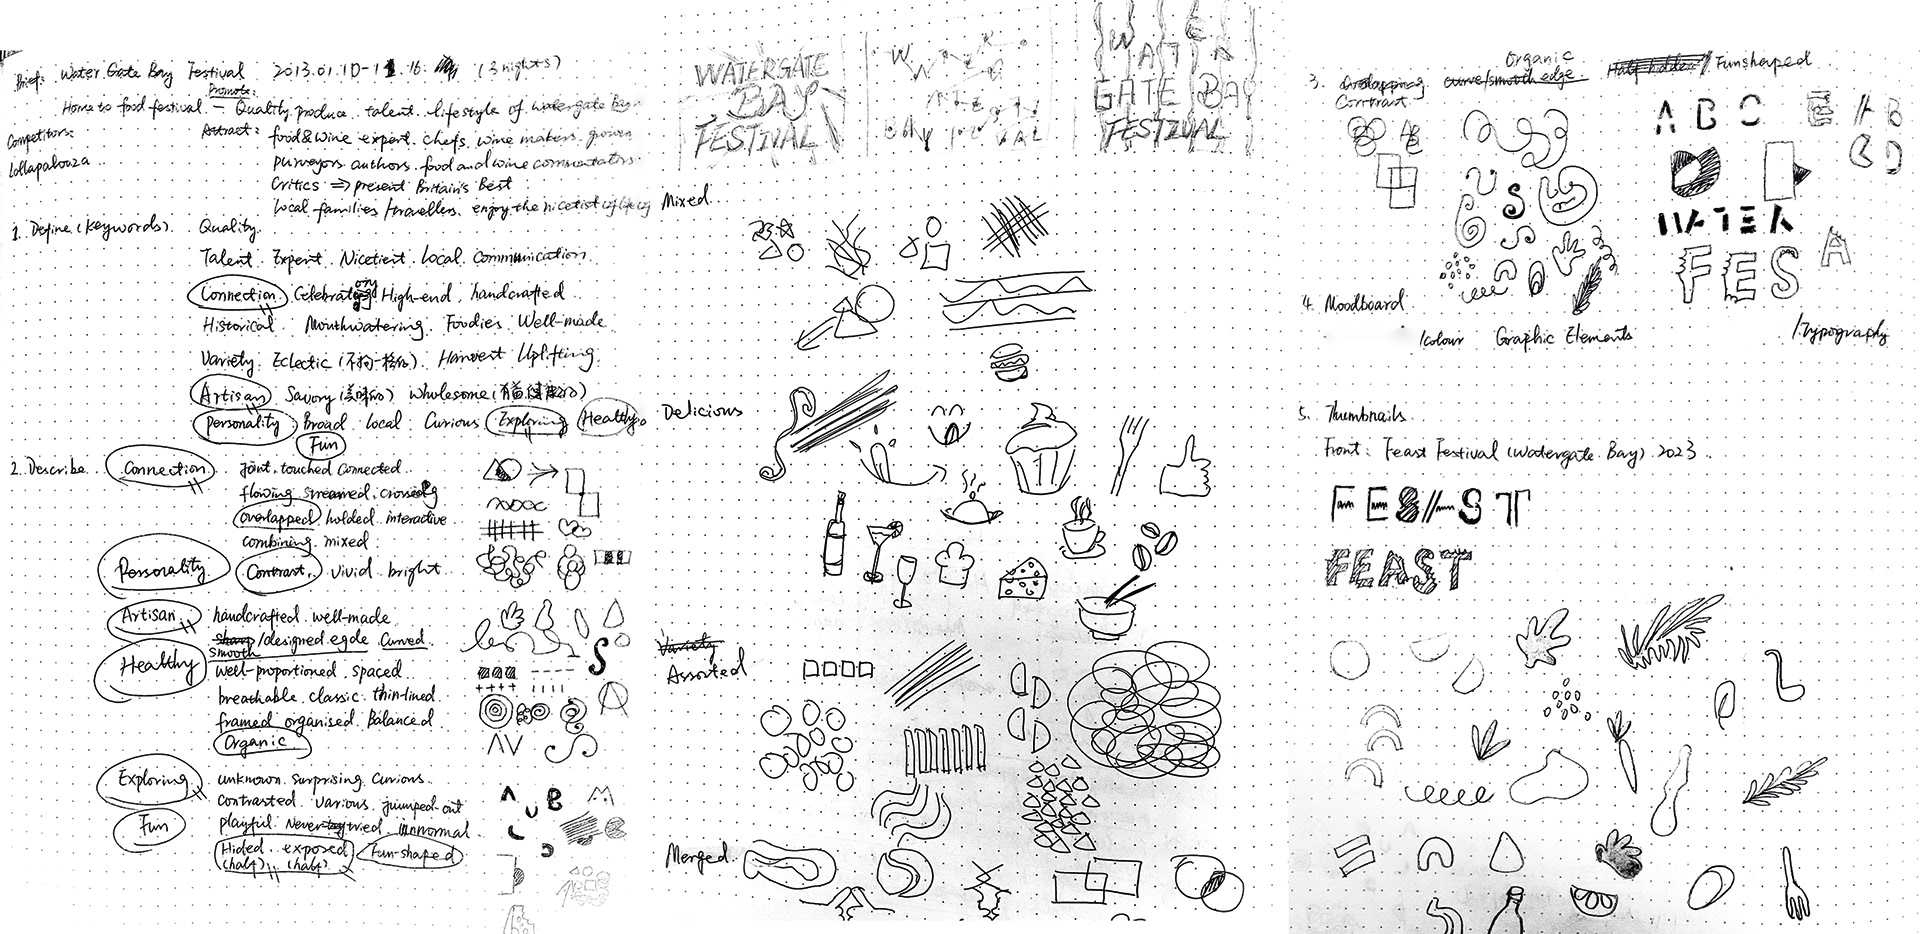 Brief: Water Gate Bay Festival 2013.01.10-11.16 (3 nights)
Promote:
Home to food festival — Quality produce talent lifestyle of watergate Bay
Competitors: Attract: food&wine expert. chefs. wine makers. growers
Lollapalooza purveyors. authors. food and wine commentators
Critics ⇒ present Britain's Best
Local families/travellers. enjoy the
1. Define (keywords) Quality.
Talent. Expert. Nicetiet. Local. Communication.
Connection. Celebratory High-end. handcrafted.
Historical. Mouthwatering. Foodies. Well-made
Variety. Eclectic (不拘一格的). Harvest Uplifting.
Artisan Savory (美味的) Wholesome
Personality Broad local Curious Exploring Healthy.
Fun
2. Describe. Connection joint. touched connected.
flowing streamed. crossing
overlapped holded interactive
combining. mixed
Personality Contrast. vivid. bright
Artisan handcrafted. well-made
sharp/designed egde Curved.
smooth
Healthy well-proportioned. spaced
breathable. classic. thin-lined.
framed organised. Balanced
Organic
Exploring unknown. surprising. curious.
contrasted. various. jumped-out
Fun playful. Never tried. unnormal.
Hided. exposed Fun-shaped
(half). (half)
WATERGATE
BAY
FESTIVAL
WATER
GATE BAY
FESTIVAL
Mixed.
Delicious
Variety
Assorted
Merged.
Organic
3. Overlapping curve/smooth edge. Half hidden/Funshaped
Contrast
A B C E A B
C D
S
WATER
FES A
4. Moodboard
/colour Graphic Elements /Typography
5. Thumbnails.
Front: Feast Festival (Watergate Bay) 2023.
FEAST
FEAST